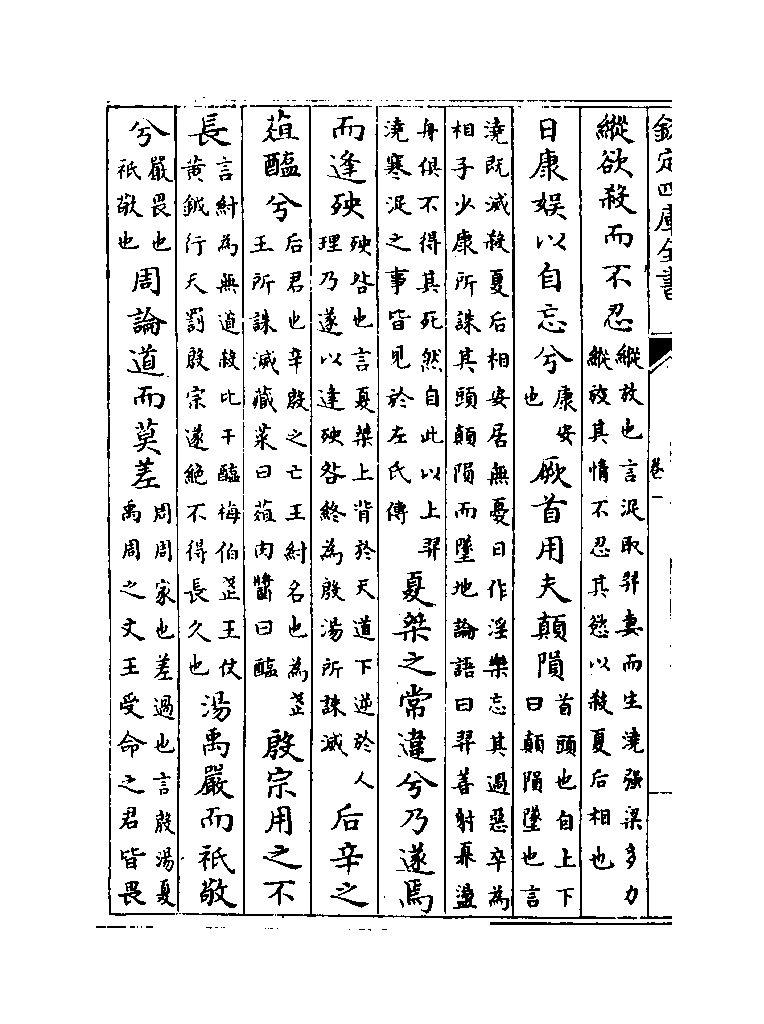 欽定四庫全書
卷一
縱欲殺而不忍縱放也言浞取羿妻而生澆强梁多力縱放其情不忍其慾以殺夏后相也
日康娛以自忘兮康安也厥首用夫顛隕首頭也自上下曰顛隕墜也言
澆既滅殺夏后相安居無憂日作淫樂忘其過惡卒為相子少康所誅其頭顛隕而墜地論語曰羿善射奡盪
舟俱不得其死然自此以上羿澆寒浞之事皆見於左氏傳夏桀之常違兮乃遂焉
而逢殃殃咎也言夏桀上背於天道下逆於人理乃遂以逢殃咎終為殷湯所誅滅后辛之
葅醢兮后君也辛殷之亡王紂名也為武王所誅滅藏菜曰葅肉醬曰醢殷宗用之不
長言紂為無道殺比干醢梅伯武王仗黃鉞行天罰殷宗遂絕不得長久也湯禹嚴而祇敬
兮嚴畏也祇敬也周論道而莫差周周家也差過也言殷湯夏禹周之文王受命之君皆畏